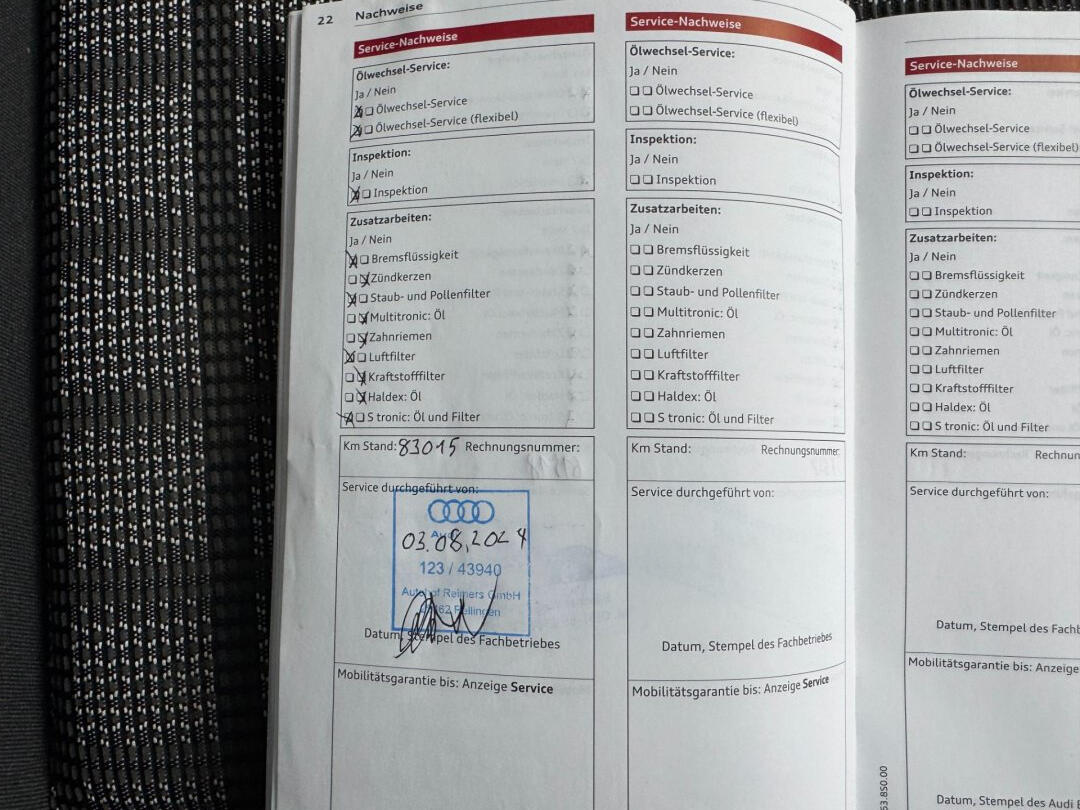 22 Nachweise
Service-Nachweise
Ölwechsel-Service:
Ja / Nein
Ölwechsel-Service
Ölwechsel-Service (flexibel)
Inspektion:
Ja / Nein
Inspektion
Zusatzarbeiten:
Ja / Nein
Bremsflüssigkeit
Zündkerzen
Staub- und Pollenfilter
Multitronic: Öl
Zahnriemen
Luftfilter
Kraftstofffilter
Haldex: Öl
S tronic: Öl und Filter
Km Stand: 83015 Rechnungsnummer:
Service durchgeführt von:
03.08.2024
123 / 43940
Autohof Reimers GmbH
Datum, Stempel des Fachbetriebes
Mobilitätsgarantie bis: Anzeige Service
Service-Nachweise
Ölwechsel-Service:
Ja / Nein
Ölwechsel-Service
Ölwechsel-Service (flexibel)
Inspektion:
Ja / Nein
Inspektion
Zusatzarbeiten:
Ja / Nein
Bremsflüssigkeit
Zündkerzen
Staub- und Pollenfilter
Multitronic: Öl
Zahnriemen
Luftfilter
Kraftstofffilter
Haldex: Öl
S tronic: Öl und Filter
Km Stand: Rechnungsnummer:
Service durchgeführt von:
Datum, Stempel des Fachbetriebes
Mobilitätsgarantie bis: Anzeige Service
Service-Nachweise
Ölwechsel-Service:
Ja / Nein
Ölwechsel-Service
Ölwechsel-Service (flexibel)
Inspektion:
Ja / Nein
Inspektion
Zusatzarbeiten:
Ja / Nein
Bremsflüssigkeit
Zündkerzen
Staub- und Pollenfilter
Multitronic: Öl
Zahnriemen
Luftfilter
Kraftstofffilter
Haldex: Öl
S tronic: Öl und Filter
Km Stand: Rechnun
Service durchgeführt von:
Datum, Stempel des Fach
Mobilitätsgarantie bis: Anzeige
Datum, Stempel des Audi
53.850.00